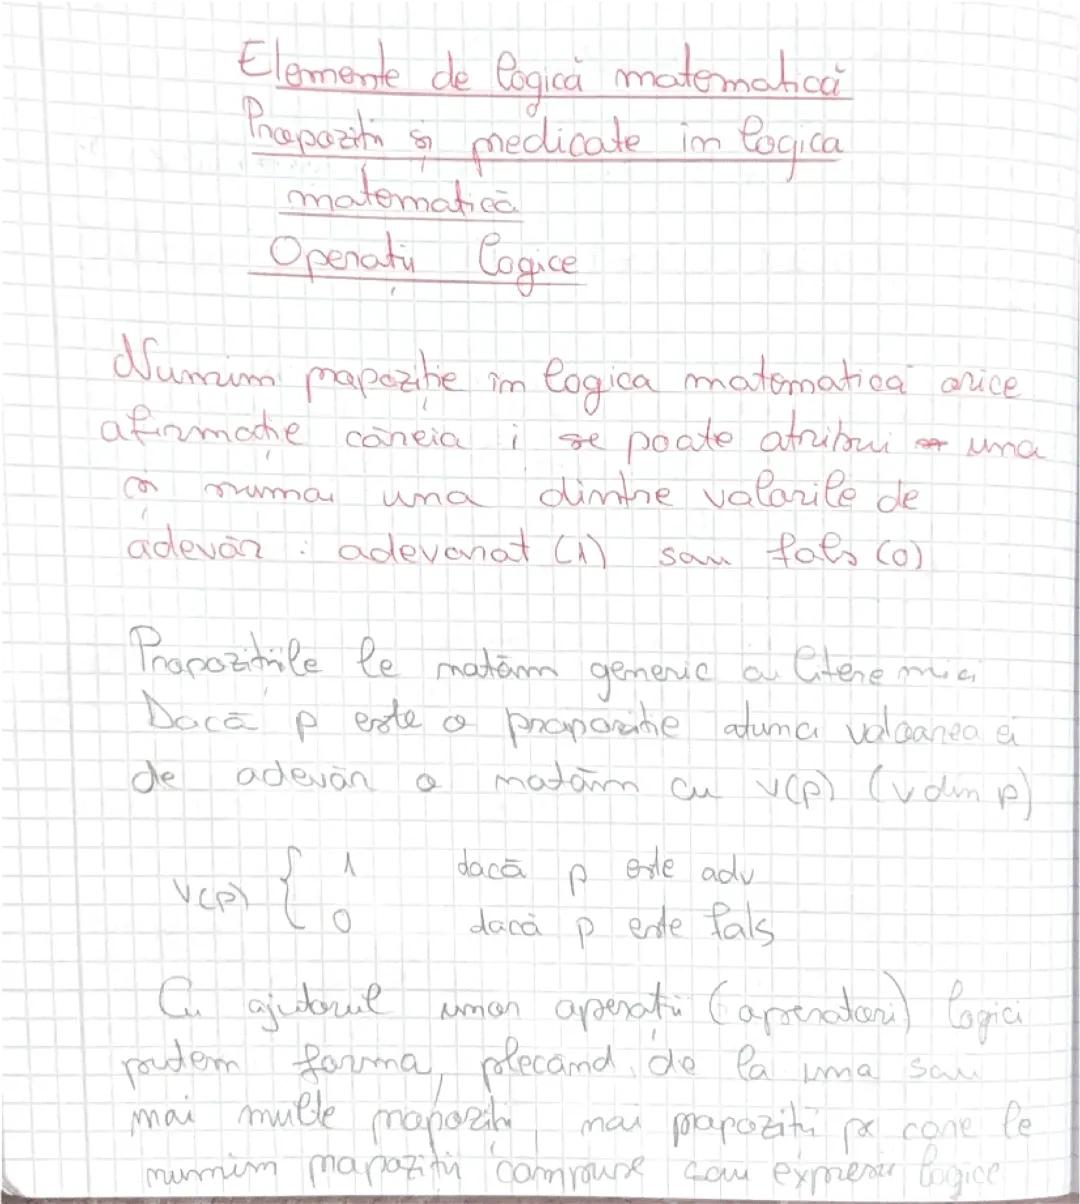 Elemente de logică matematică
Propoziții și predicate în logica
matematică
Operații logice
Numim propoziție în logica matematică orice
afirmație căreia i se poate atribui una
și numai una dintre valorile de
adevăr : adevărat (1) sau fals (0)
Propozițiile le notăm generic cu litere mici
Dacă p este o propoziție atunci valoarea ei
de adevăr o notăm cu v(p) (v din p)
v(p) { 1 dacă p este adv
0 dacă p este fals
Cu ajutorul unor operații (operatori) logici
putem forma, plecând de la una sau
mai multe propoziții, noi propoziții pe care le
numim propoziții compuse sau expresii logice